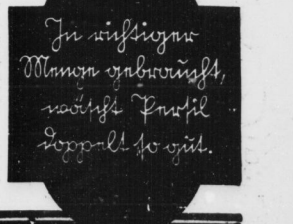 In richtiger
Menge gebraucht,
wäscht Persil
doppelt so gut.